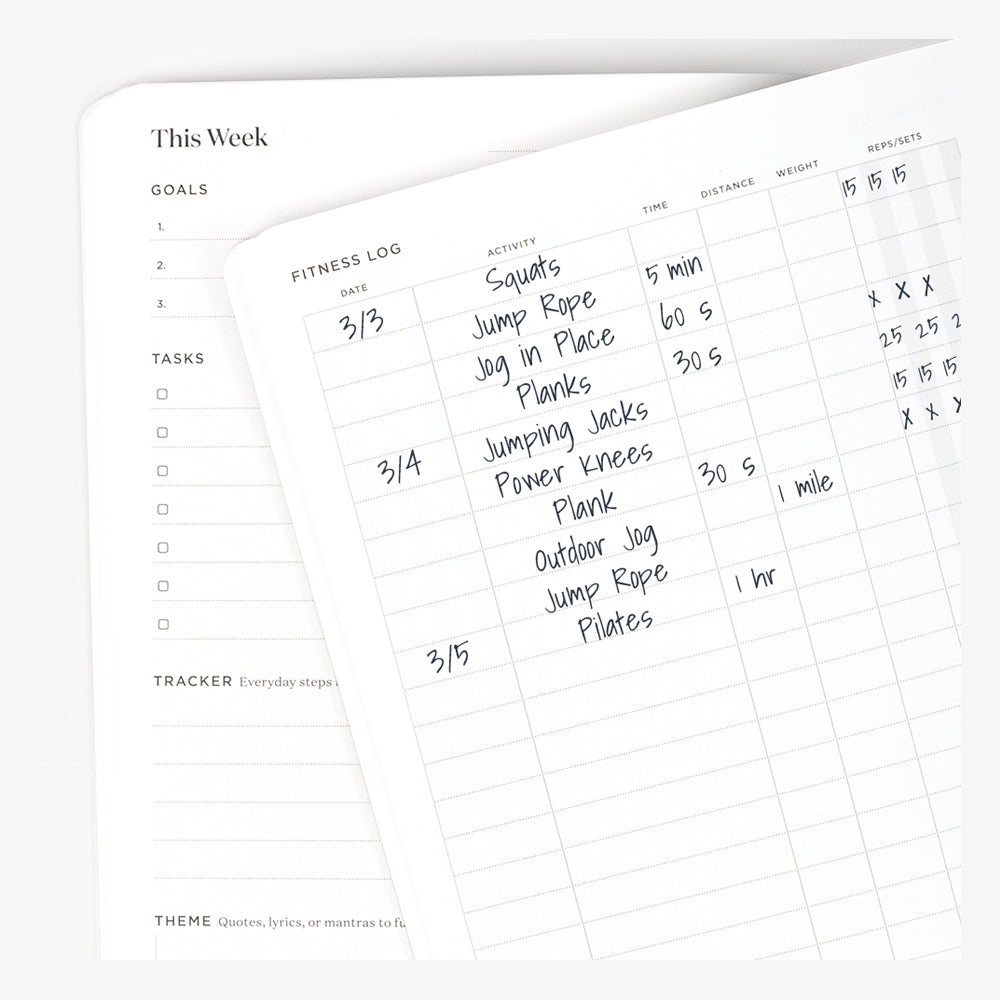 This Week
GOALS
1.
2.
3.
TASKS
TRACKER Everyday steps
THEME Quotes, lyrics, or mantras to fu
FITNESS LOG
DATE ACTIVITY TIME DISTANCE WEIGHT REPS/SETS
3/3 Squats 15 15 15
Jump Rope 5 min
Jog in Place 60 s
Planks 30 s X X X
3/4 Jumping Jacks 25 25 2
Power Knees 15 15 15
Plank 30 s X X X
Outdoor Jog 1 mile
Jump Rope
3/5 Pilates 1 hr